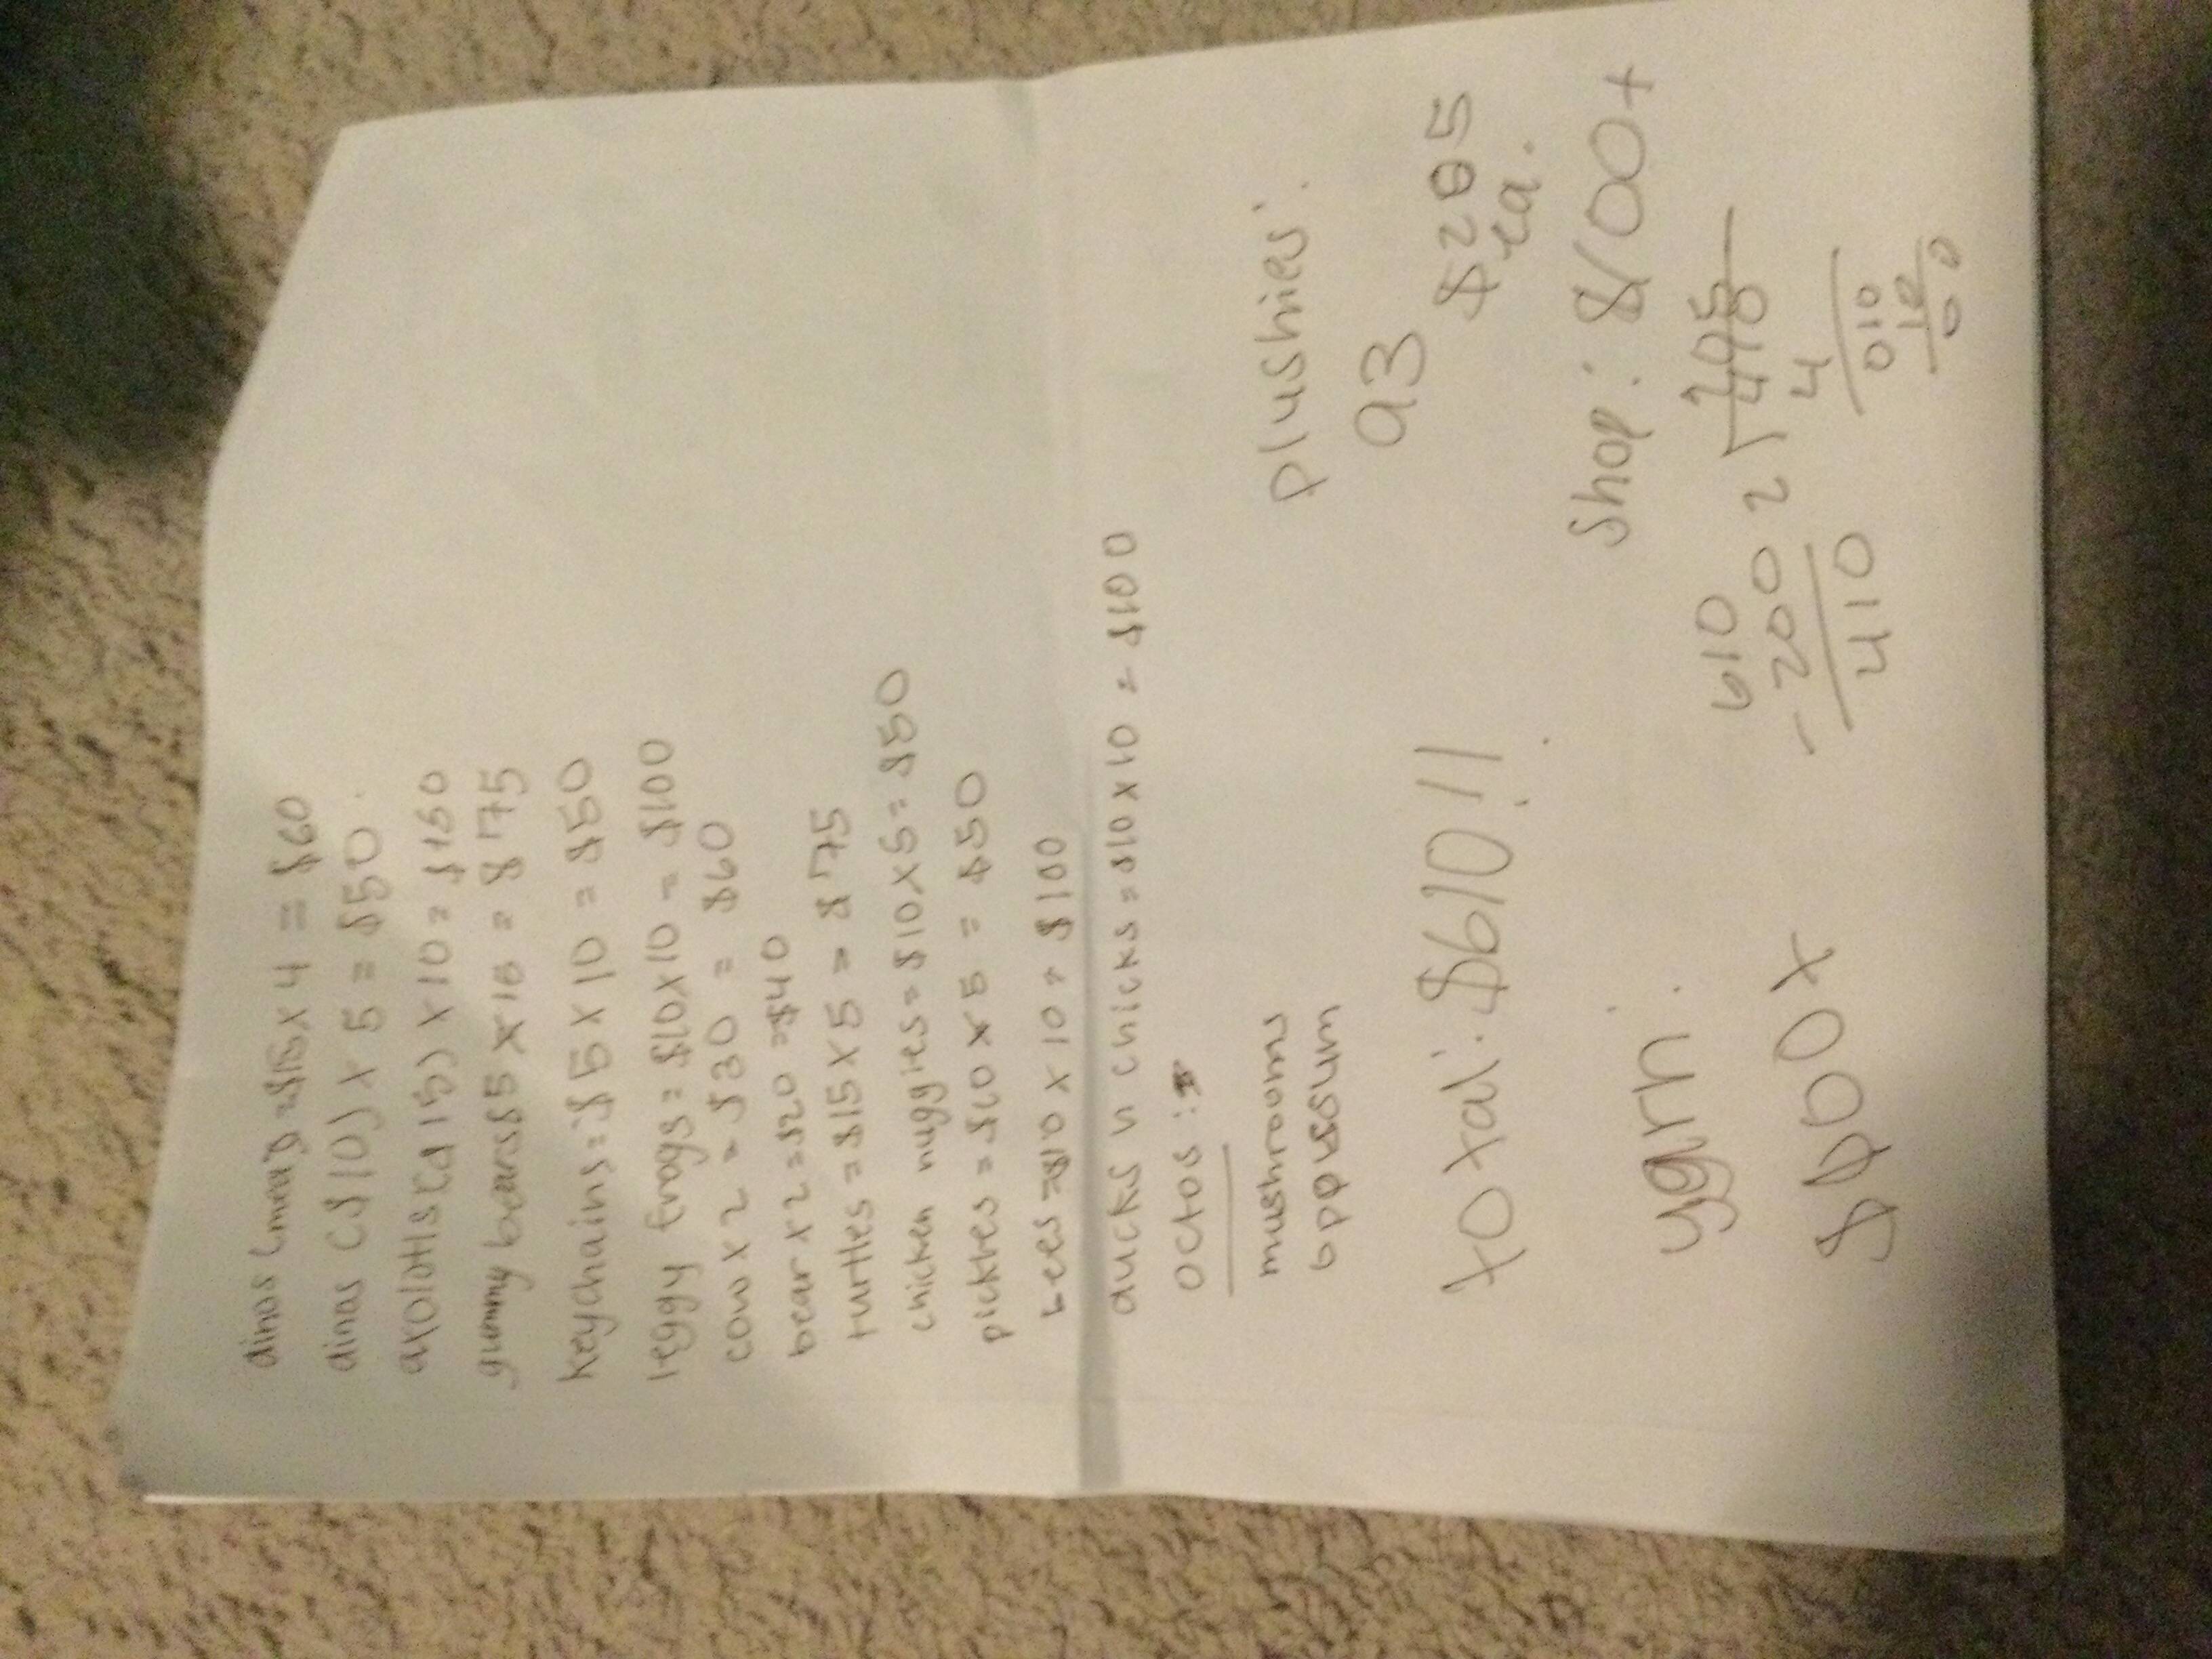 dinos (mini) = $15 x 4 = $60
dinos ($10) x 5 = $50
axolotls (15) x 10 = $150
gummy bears $5 x 15 = $75
keychains = $5 x 10 = $50
leggy frogs = $10 x 10 = $100
cow x 2 = $30 = $60
bear x 2 = $20 = $40
turtles = $15 x 5 = $75
chicken nuggies = $10 x 5 = $50
pickles = $10 x 5 = $50
= $10 x 10 = $100
ducks n chicks = $10 x 10 = $100
octos :
mushrooms
oppusum
plushies:
93
total: $610!!
$205
ea.
yarn:
$100x
shop: $100+
610
- 200
410
2
4
010
10
00